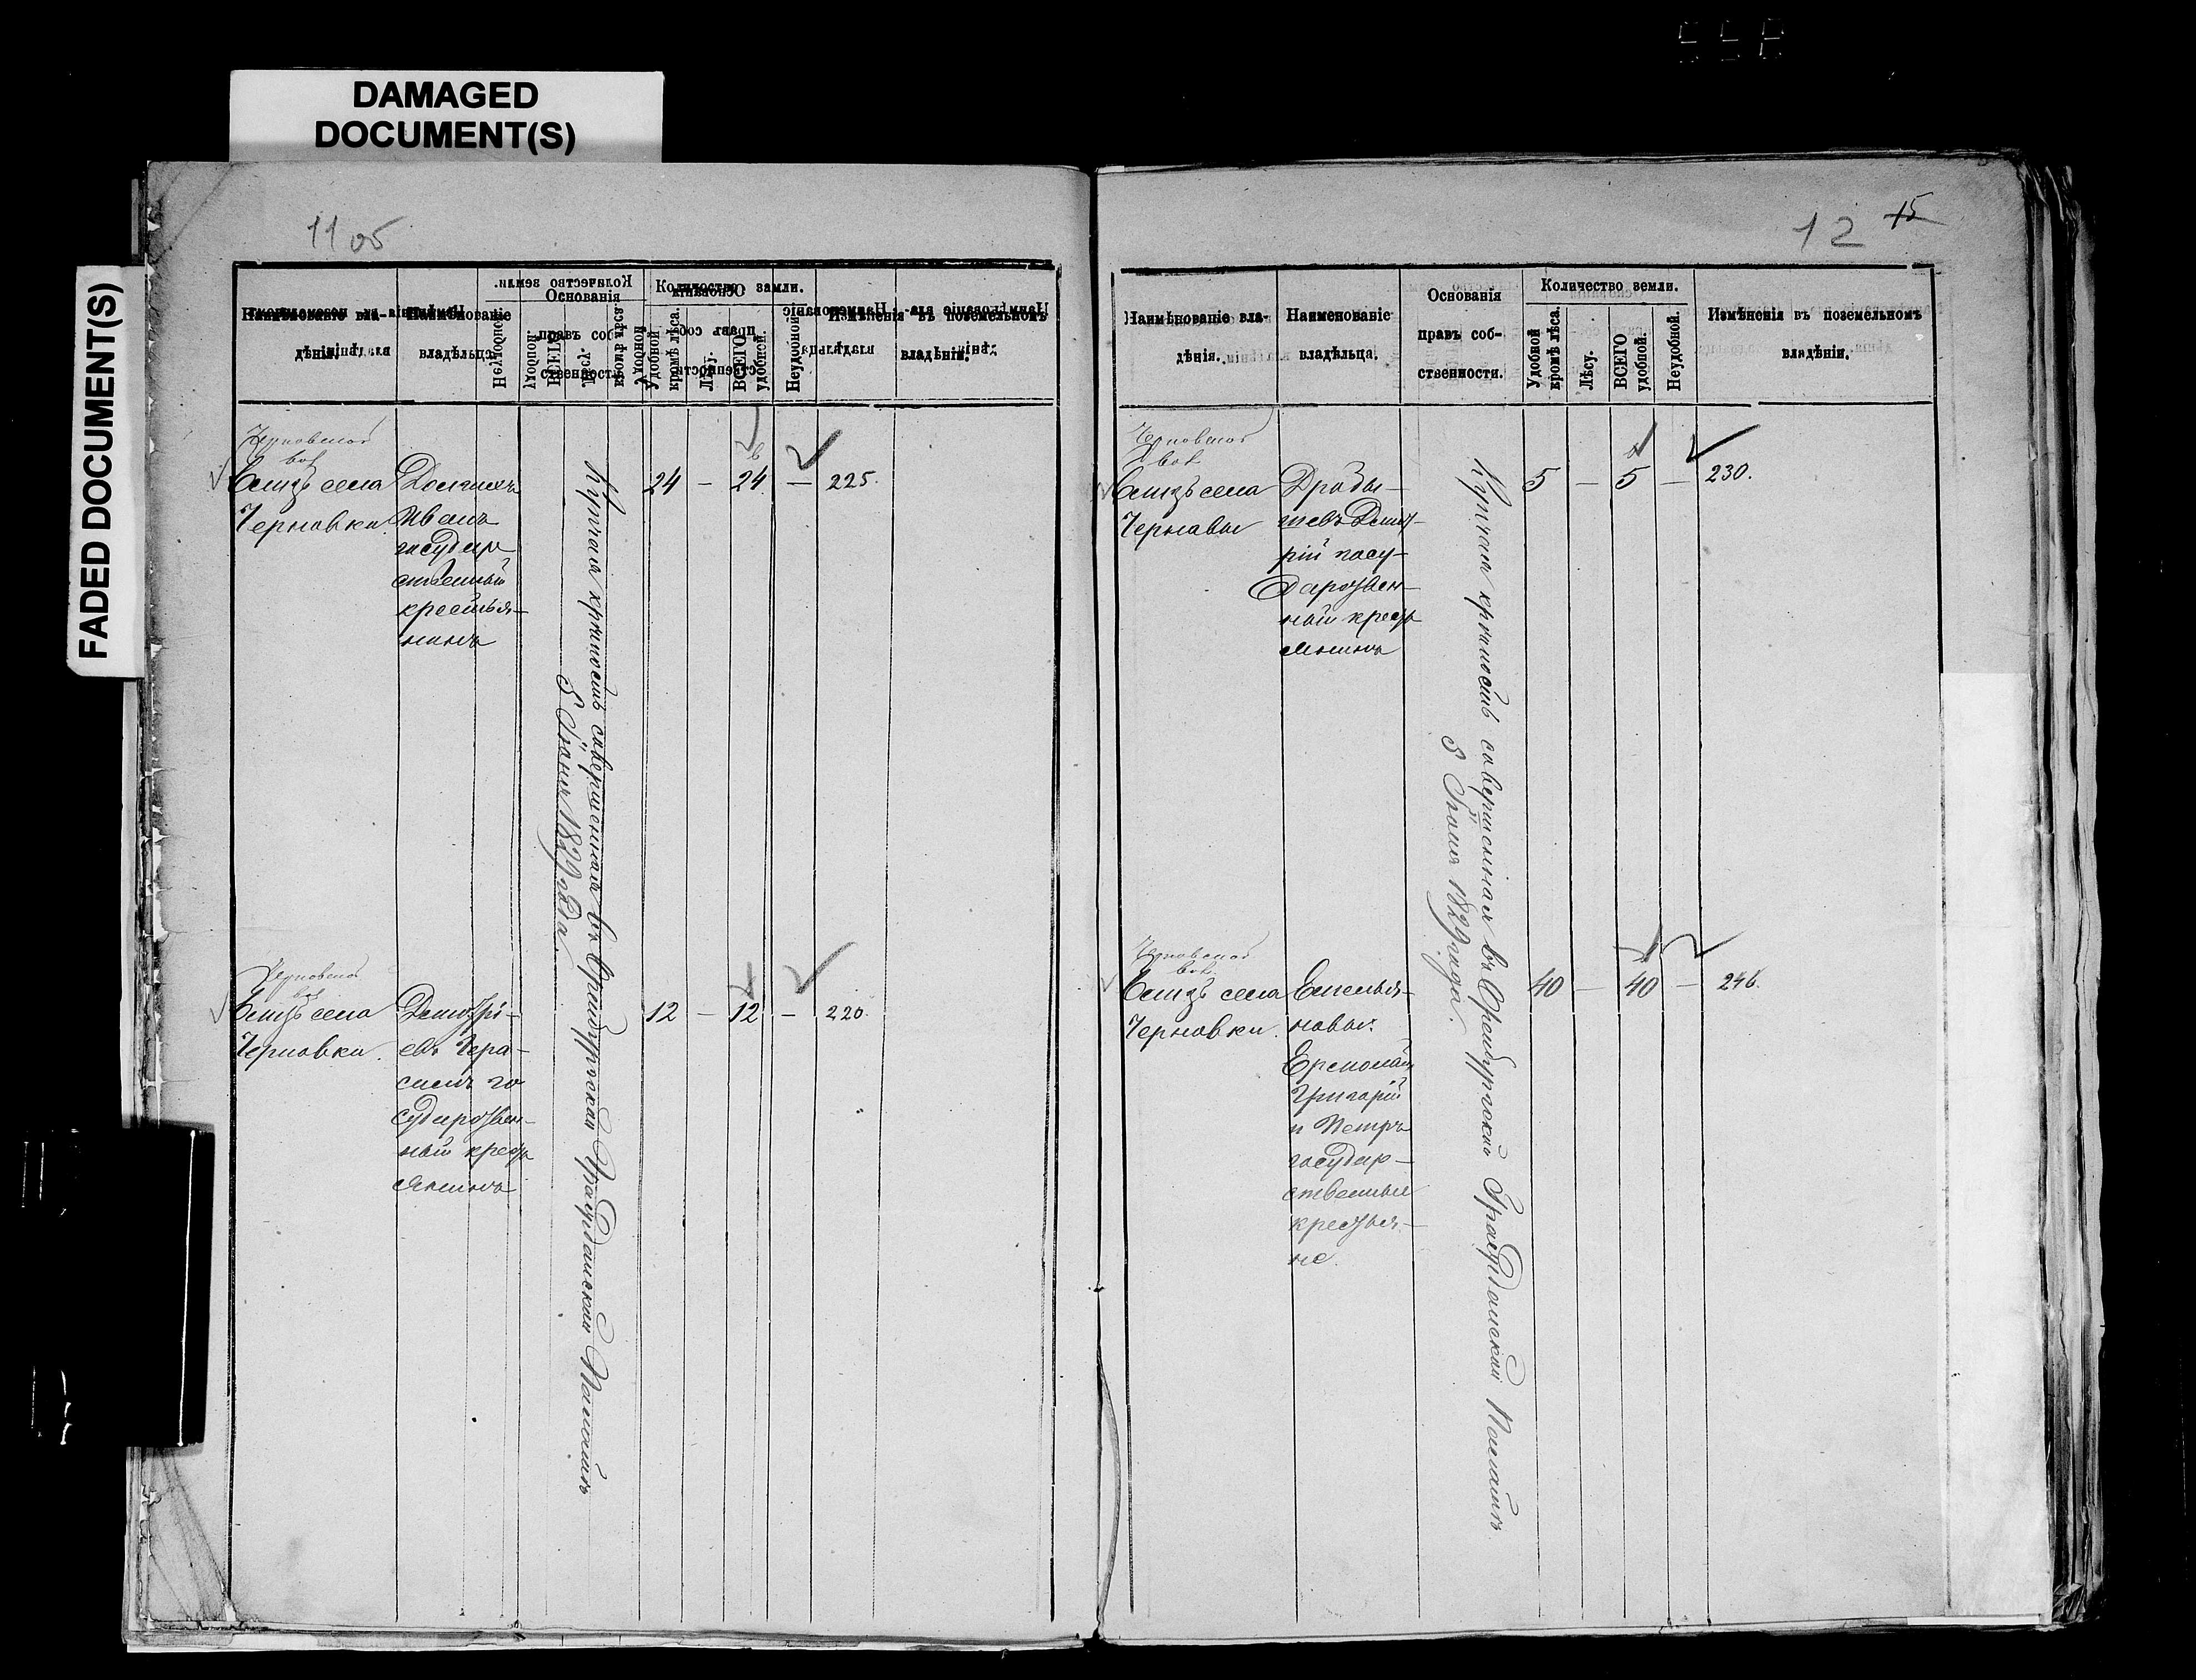 DAMAGED
DOCUMENT(S)
FADED DOCUMENT(S)
11 об
Наименованіе вла-
дѣнія.
Наименованіе
владѣльца.
Основанія
правъ соб-
ственности.
Количество земли.
Удобной
кромѣ лѣса.
Лѣсу.
ВСЕГО
удобной.
Неудобной.
Измѣненія въ поземельномъ
владѣніи.
Черновской
вол
Близъ села
Черновки
Иванъ
государ
ственный
крестья-
нинъ
Купчая крѣпость совершенная въ Оренбургской Гражданской Палатѣ
5 Іюня 1829 года.
24 — 24 — 225.
Черновской
вол
Близъ села
Черновки.
Дмитрі-
евъ Гера-
симъ го
сударствен-
ный кресть
янинъ
12 — 12 — 220.
12 15
Наименованіе вла-
дѣнія.
Наименованіе
владѣльца.
Основанія
правъ соб-
ственности.
Количество земли.
Удобной
кромѣ лѣса.
Лѣсу.
ВСЕГО
удобной.
Неудобной.
Измѣненія въ поземельномъ
владѣніи.
Черновской
вол
Близъ села
Дмит-
рій госу-
дарствен-
ный кресть
янинъ
Купчая крѣпость совершенная въ Оренбургской Гражданской Палатѣ
5 Іюня 1829 года.
5 — 5 — 230.
Черновской
вол.
Близъ села
Черновки.
Емелья-
новы:
Ермолай
Григорій
и Петръ
государ-
ственные
крестья-
не.
40 — 40 — 246.